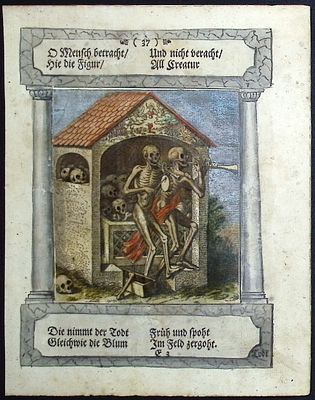 ( 37 )
O Mensch betracht/ Und nicht veracht/
Hie die Figur/ All Creatur
Die nimmt der Todt Früh und spoht
Gleichwie die Blum Im Feld zergoht.
E 3 Todt